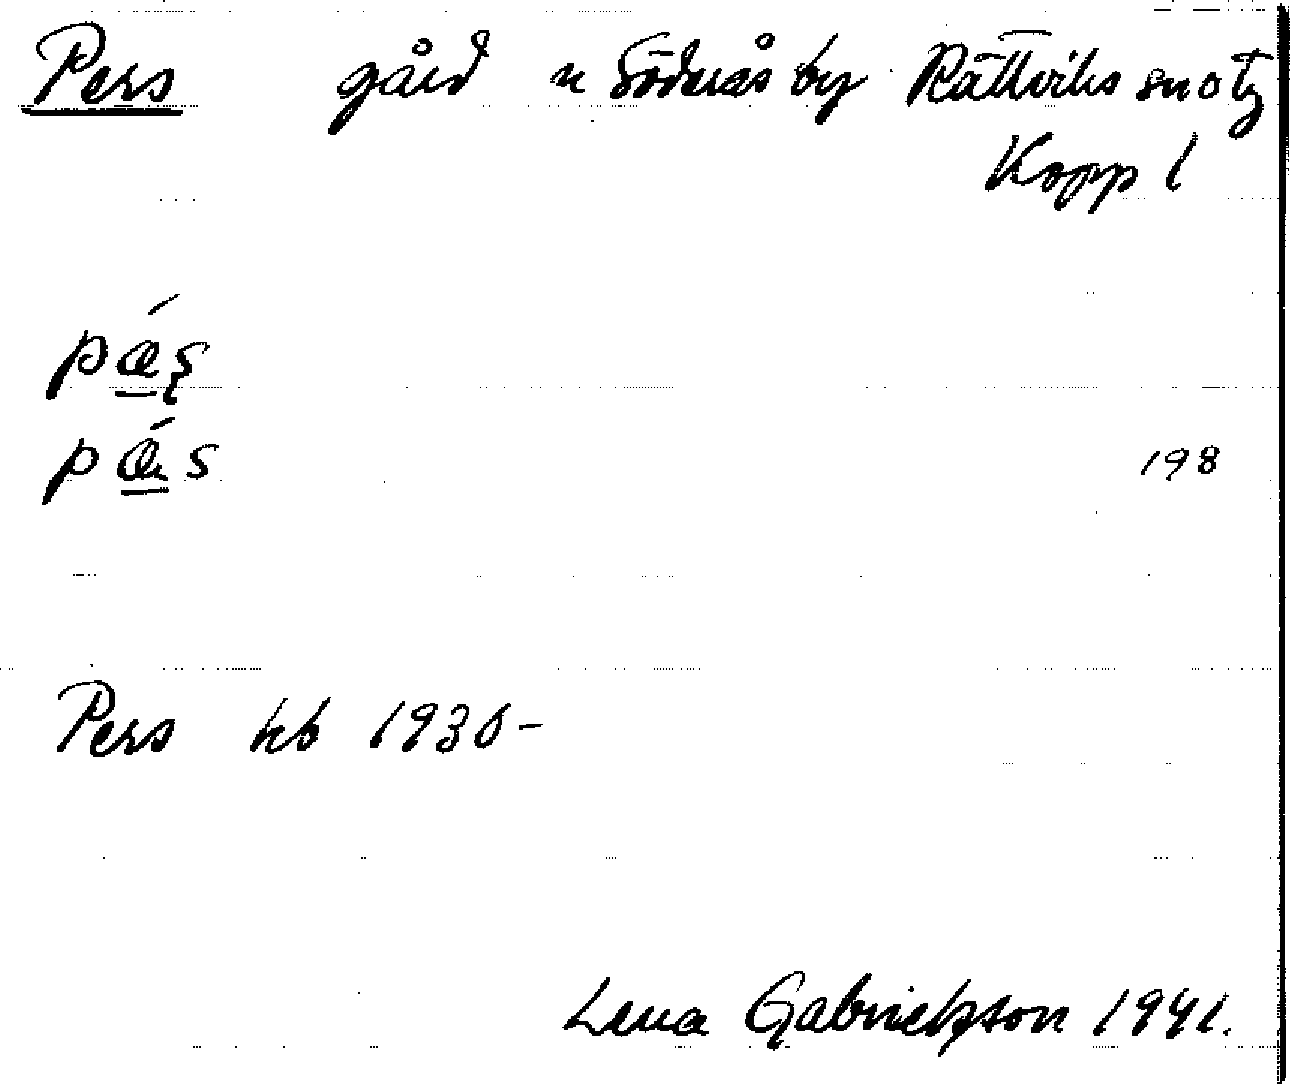 Pers gård n Söderås by Rättviks sn o tg
Kopp l
pǽ̠ʂ
pǽ̠s 198
Pers kb 1930-
Lena Gabrielsson 1941.